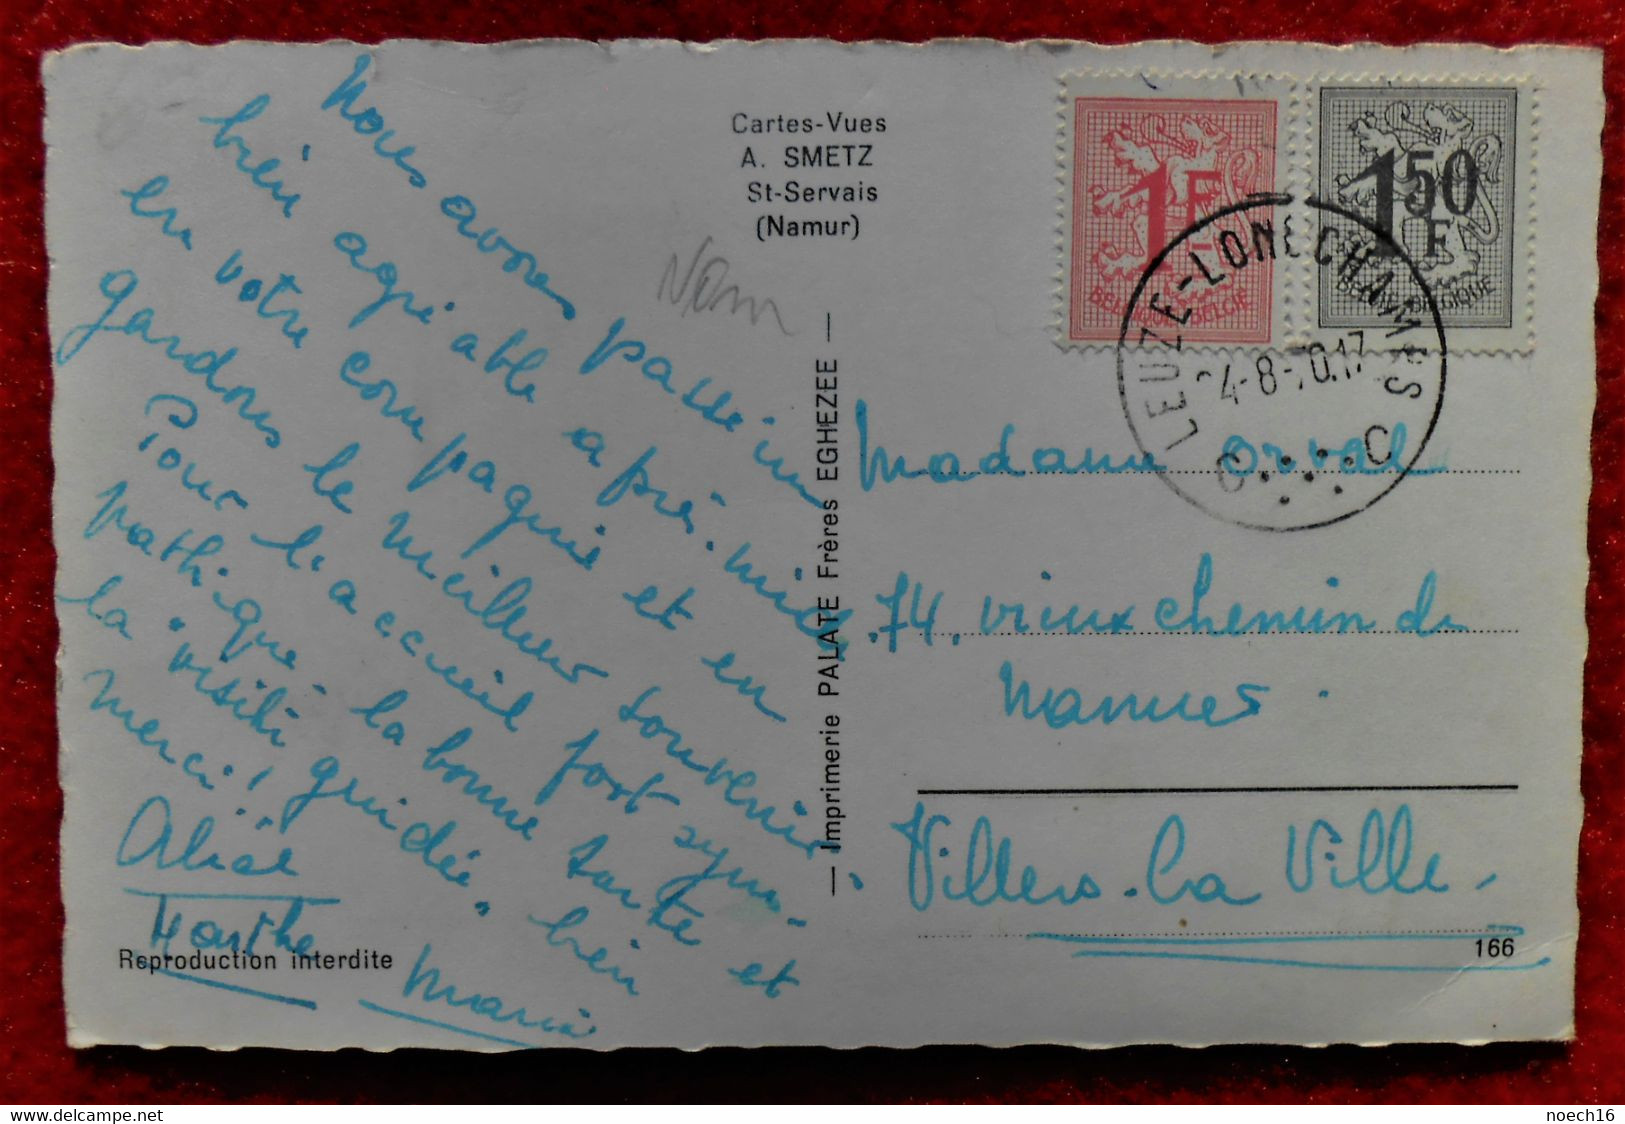 Nous avons passé un
bien agréable après-midi
en votre compagnie et en
gardons le meilleur souvenir.
Pour l'accueil fort sym-
pathique, la bonne tarte et
la "visite guidée" bien
merci!
Alice
Marthe Maria
Reproduction interdite
Cartes-Vues
A. SMETZ
St-Servais
(Namur)
Nam
— Imprimerie PALATE Frères EGHEZEE —
1F
BELGIQUE-BELGIE
1 50 F
BELGIE-BELGIQUE
LEUZE-LONGCHAMPS
24-8-70.17
C C
Madame Orval
74, vieux chemin de
Namur.
Villers-la Ville,
166
delcampe.net
noech16